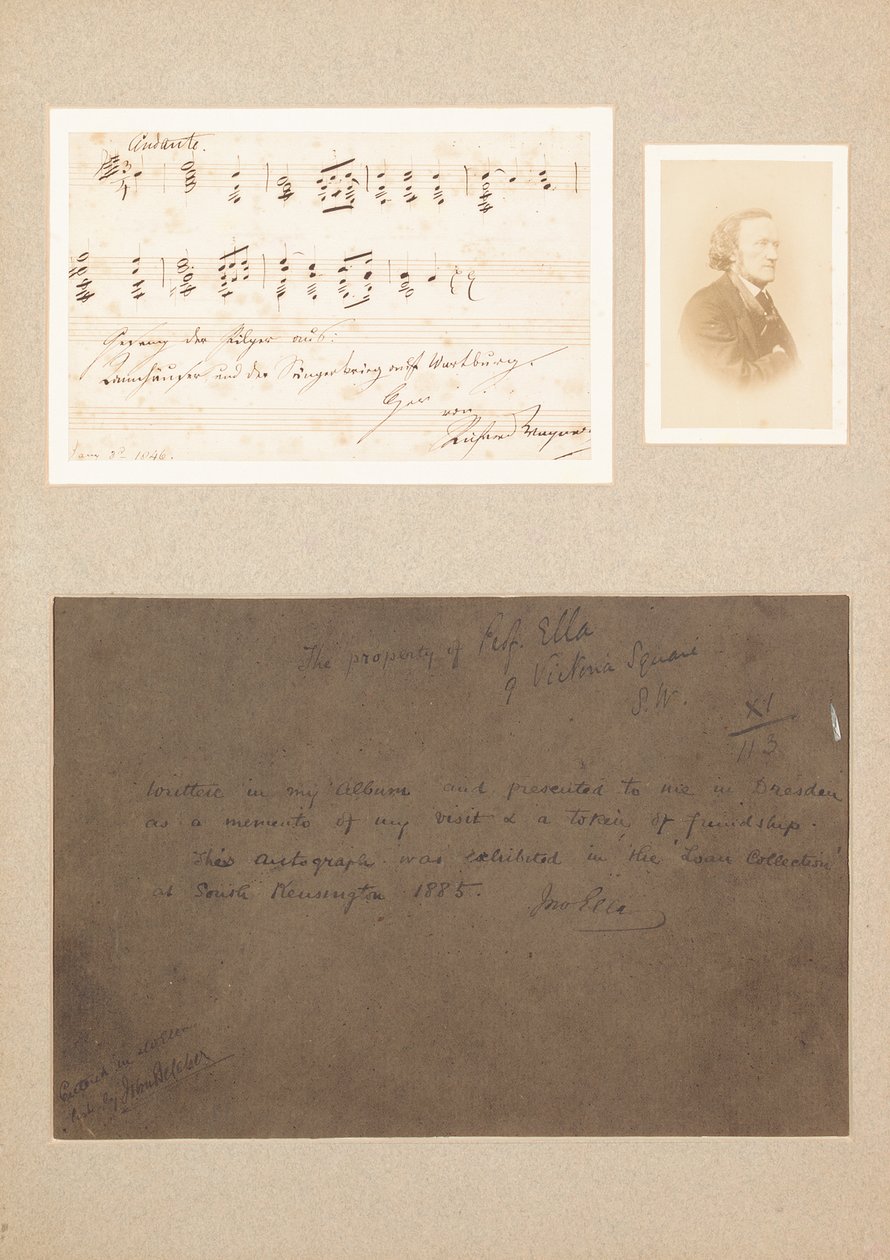 Andante.
3
4
Gesang der Pilger aus:
Tannhäuser und der Sängerkrieg auf Wartburg.
Oper
von
Richard Wagner
Jany 3d 1846.
The property of Prof. Ella
9 Victoria Square
S.W.
XI
113
Written in my Album and presented to me in Dresden
as a memento of my visit & a token of friendship.
This autograph was exhibited in the 'Loan Collection'
at South Kensington 1885.
Jno Ella
in
by